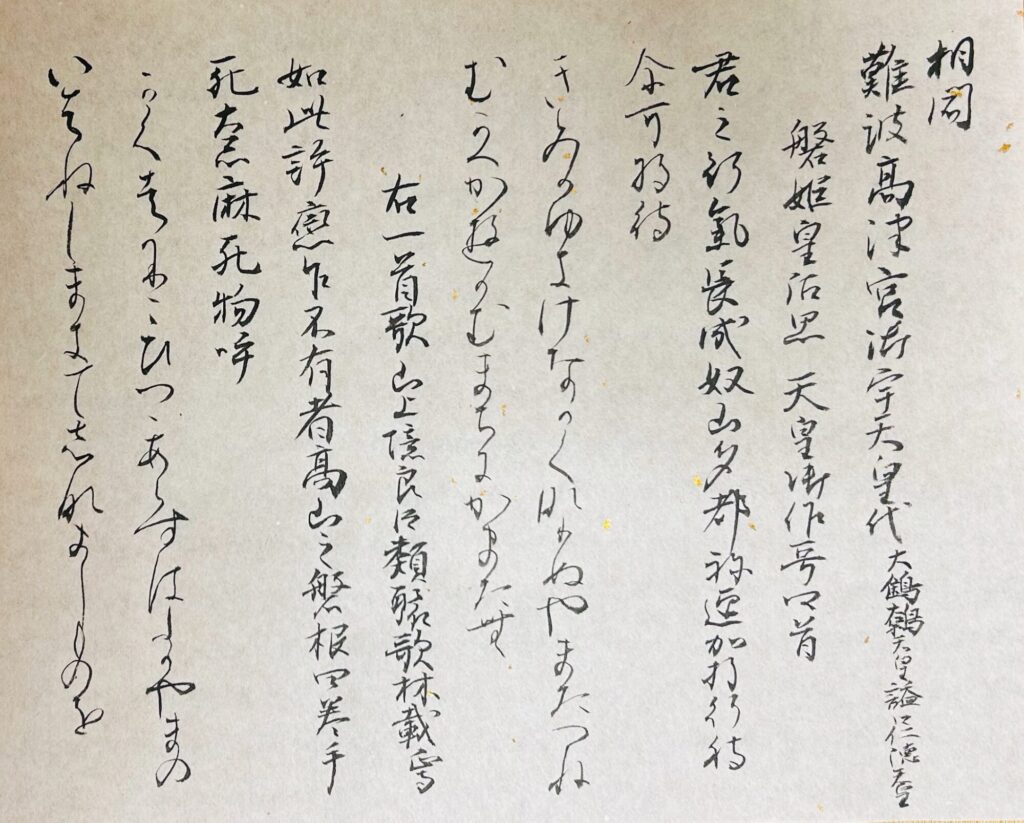 相聞
難波高津宮御宇天皇代 大鷦鷯天皇謚曰仁徳天皇
磐姫皇后思 天皇御作哥四首
君之行氣長成奴山多都祢迎加将行待
尓可将待
きみかゆきけなかくなりぬやまたつね
むかへかゆかむまちにかまたむ
右一首歌山上憶良臣類聚歌林載焉
如此許戀乍不有者高山之磐根四巻手
死奈麻死物呼
かくはかりこひつゝあらすはたかやまの
いはねしまきてしなましものを